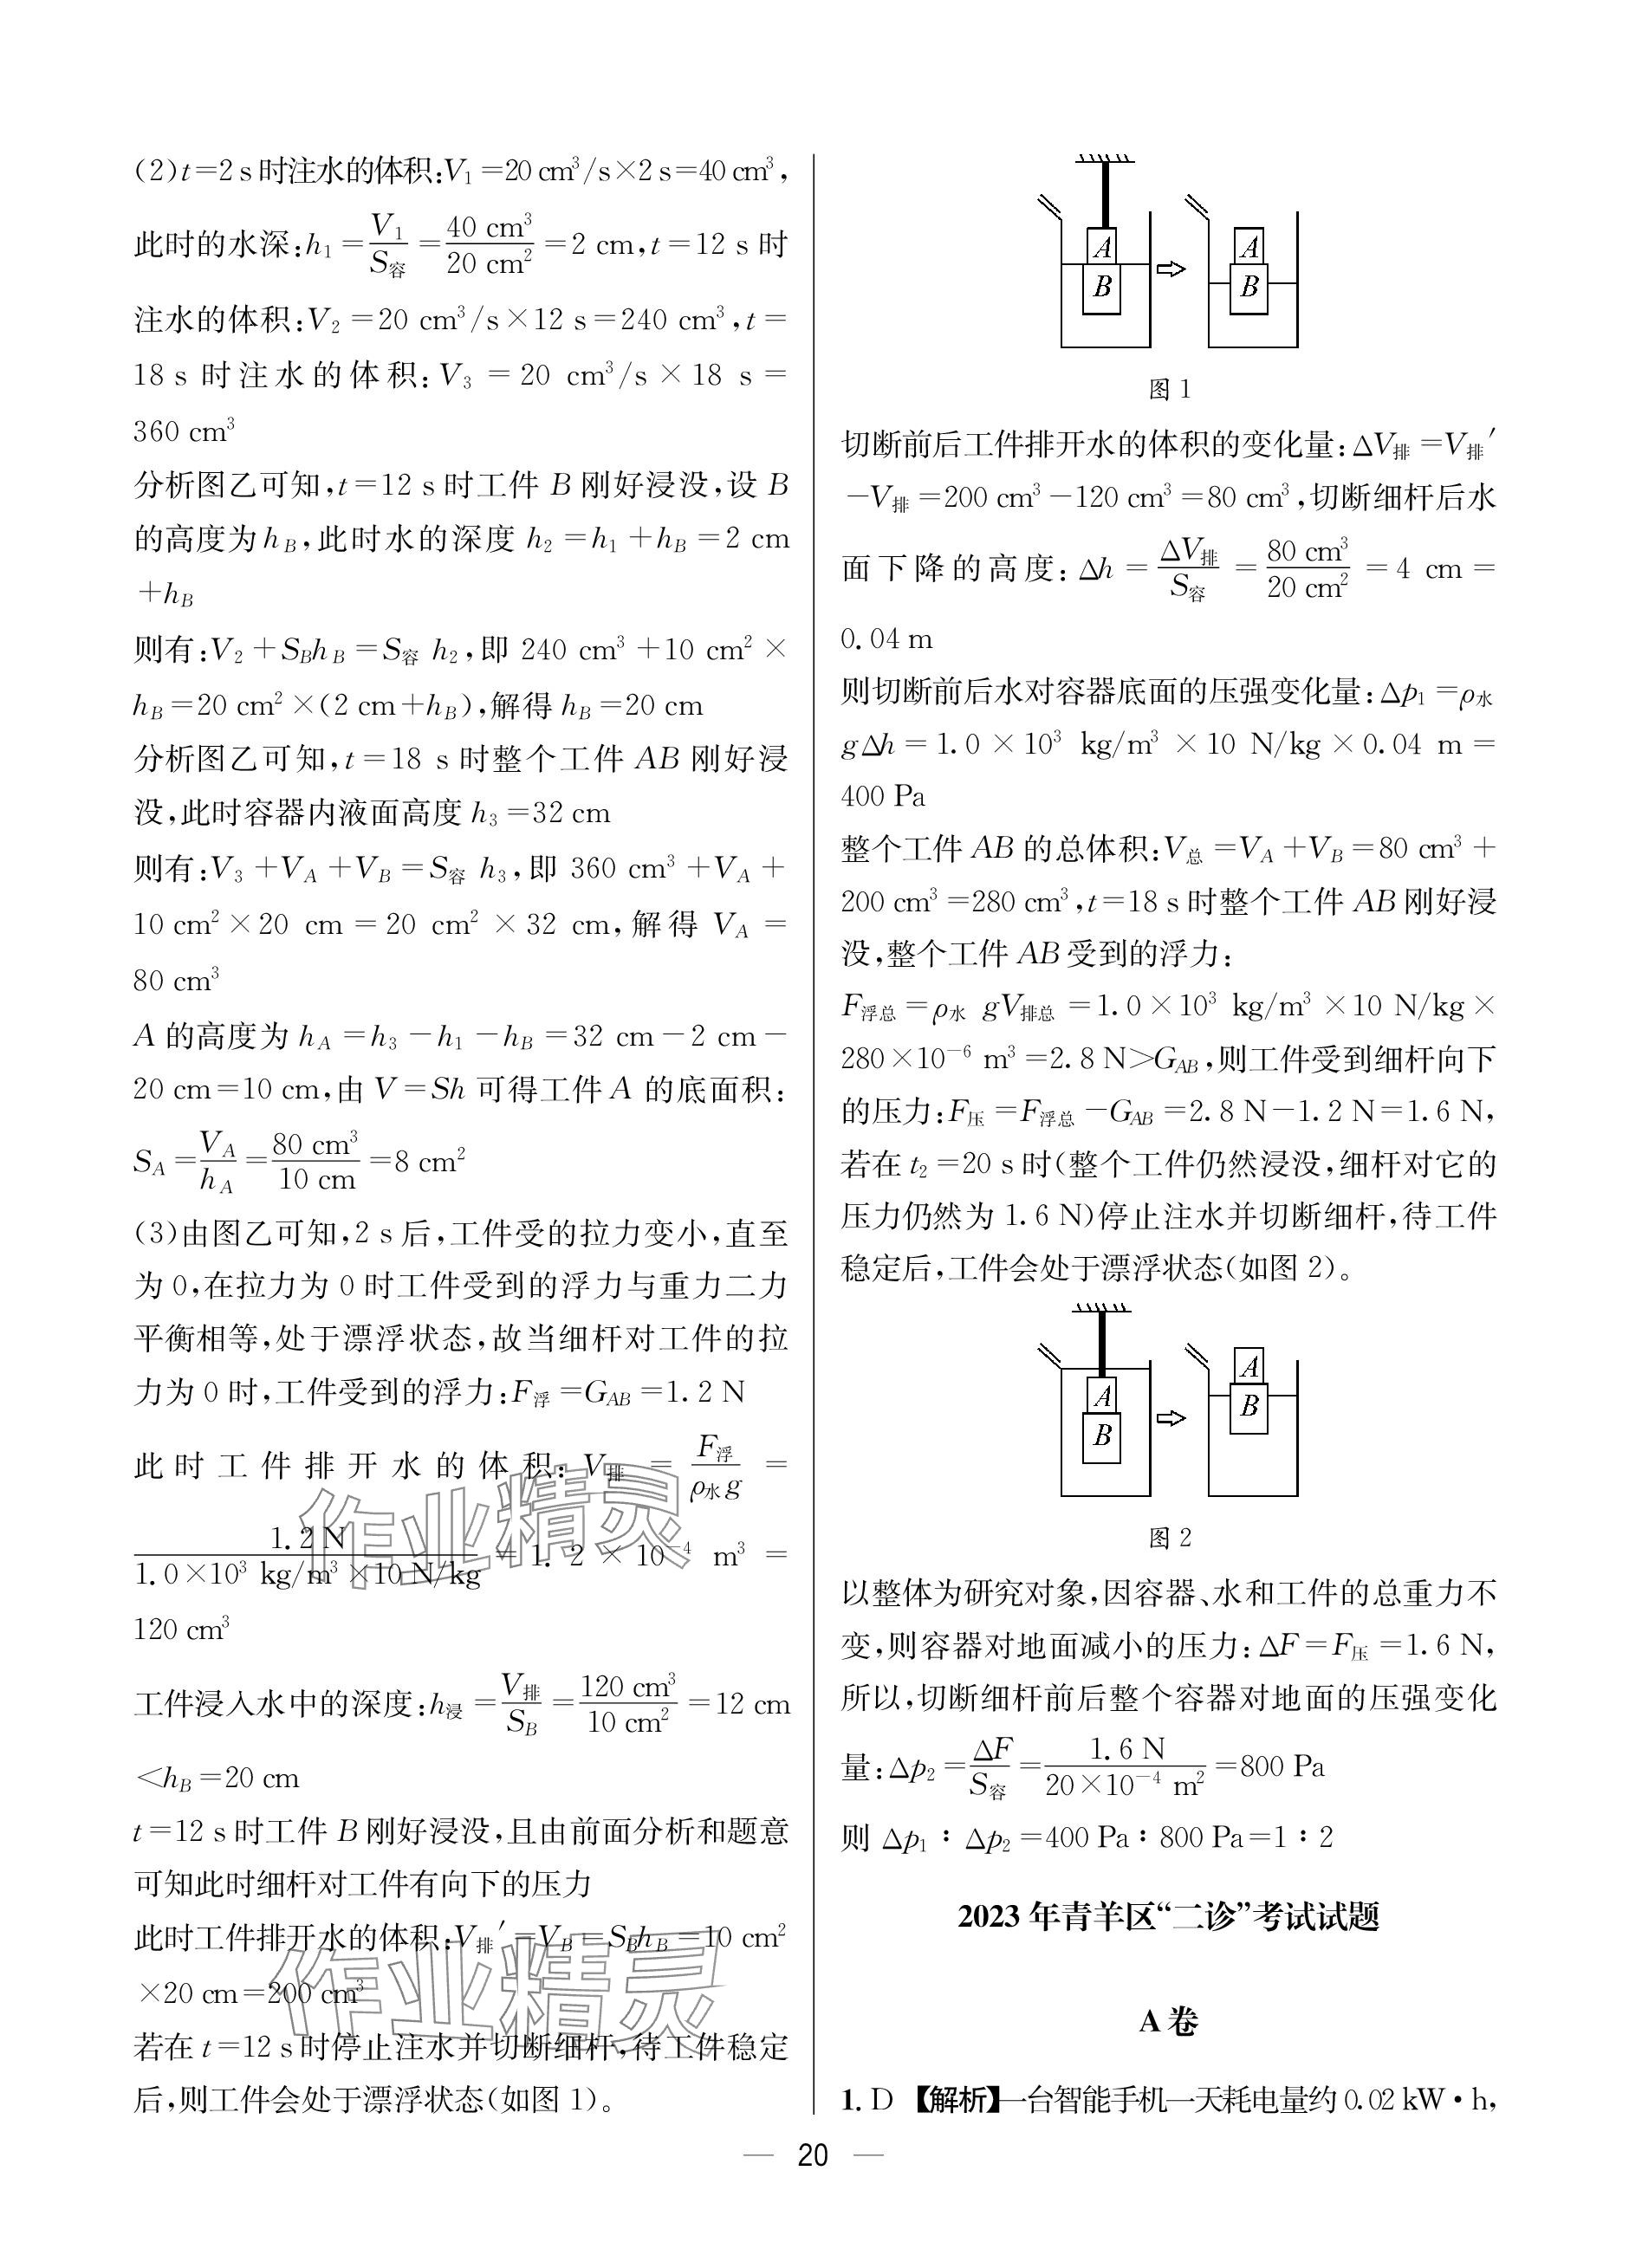 (2)t=2 s时注水的体积:V₁=20 cm³/s×2 s=40 cm³,
此时的水深:h₁=V₁/S容=40 cm³/20 cm²=2 cm,t=12 s 时
注水的体积:V₂=20 cm³/s×12 s=240 cm³,t=
18 s 时注水的体积:V₃=20 cm³/s×18 s=
360 cm³
分析图乙可知,t=12 s时工件 B 刚好浸没,设 B
的高度为h_B,此时水的深度 h₂=h₁+h_B=2 cm
+h_B
则有:V₂+S_Bh_B=S容 h₂,即 240 cm³+10 cm²×
h_B=20 cm²×(2 cm+h_B),解得 h_B=20 cm
分析图乙可知,t=18 s 时整个工件 AB 刚好浸
没,此时容器内液面高度 h₃=32 cm
则有:V₃+V_A+V_B=S容 h₃,即 360 cm³+V_A+
10 cm²×20 cm=20 cm²×32 cm,解得 V_A=
80 cm³
A 的高度为 h_A=h₃-h₁-h_B=32 cm-2 cm-
20 cm=10 cm,由 V=Sh 可得工件A 的底面积:
S_A=V_A/h_A=80 cm³/10 cm=8 cm²
(3)由图乙可知,2 s后,工件受的拉力变小,直至
为0,在拉力为 0 时工件受到的浮力与重力二力
平衡相等,处于漂浮状态,故当细杆对工件的拉
力为 0 时,工件受到的浮力:F浮=G_AB=1.2 N
此时工件排开水的体积:V排=F浮/ρ水g=
1.2 N/1.0×10³ kg/m³×10 N/kg=1.2×10⁻⁴ m³=
120 cm³
工件浸入水中的深度:h浸=V排/S_B=120 cm³/10 cm²=12 cm
<h_B=20 cm
t=12 s时工件 B刚好浸没,且由前面分析和题意
可知此时细杆对工件有向下的压力
此时工件排开水的体积:V排′=V_B=S_Bh_B=10 cm²
×20 cm=200 cm³
若在 t=12 s时停止注水并切断细杆,待工件稳定
后,则工件会处于漂浮状态(如图 1)。
A
B
A
B
图 1
切断前后工件排开水的体积的变化量:ΔV排=V排′
-V排=200 cm³-120 cm³=80 cm³,切断细杆后水
面下降的高度:Δh=ΔV排/S容=80 cm³/20 cm²=4 cm=
0.04 m
则切断前后水对容器底面的压强变化量:Δp₁=ρ水
gΔh=1.0×10³ kg/m³×10 N/kg×0.04 m=
400 Pa
整个工件 AB 的总体积:V总=V_A+V_B=80 cm³+
200 cm³=280 cm³,t=18 s时整个工件 AB刚好浸
没,整个工件 AB受到的浮力:
F浮总=ρ水 gV排总=1.0×10³ kg/m³×10 N/kg×
280×10⁻⁶ m³=2.8 N>G_AB,则工件受到细杆向下
的压力:F压=F浮总-G_AB=2.8 N-1.2 N=1.6 N,
若在 t₂=20 s时(整个工件仍然浸没,细杆对它的
压力仍然为 1.6 N)停止注水并切断细杆,待工件
稳定后,工件会处于漂浮状态(如图 2)。
A
B
A
B
图 2
以整体为研究对象,因容器、水和工件的总重力不
变,则容器对地面减小的压力:ΔF=F压=1.6 N,
所以,切断细杆前后整个容器对地面的压强变化
量:Δp₂=ΔF/S容=1.6 N/20×10⁻⁴ m²=800 Pa
则 Δp₁∶Δp₂=400 Pa∶800 Pa=1∶2
2023 年青羊区“二诊”考试试题
A 卷
1. D 【解析】一台智能手机一天耗电量约 0.02 kW·h,
— 20 —
作业精灵
作业精灵